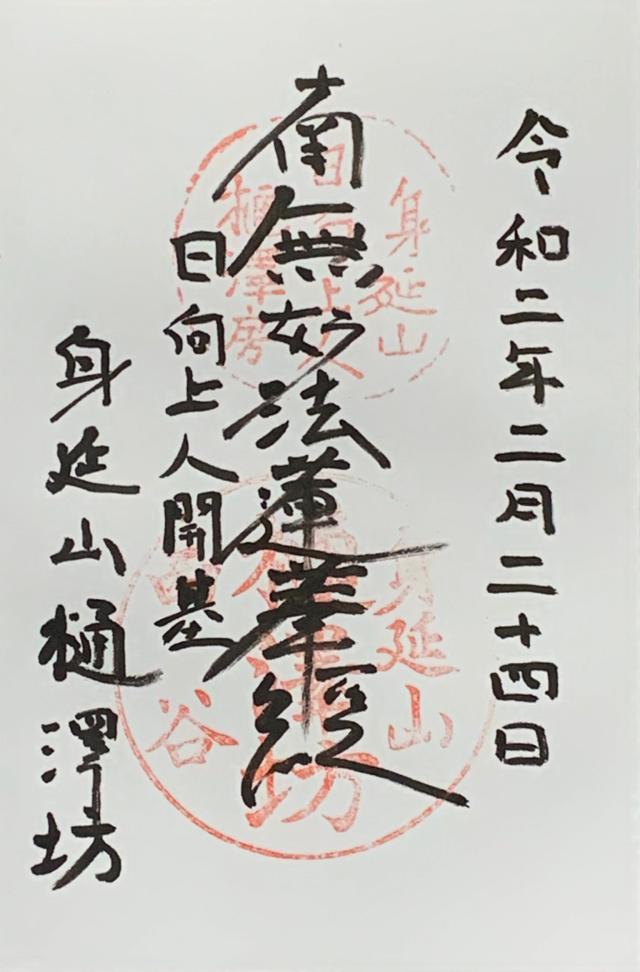 令和二年二月二十四日
南無妙法蓮華経
日向上人開基
身延山樋澤坊
身延山
樋澤房
身延山
樋澤坊
西谷